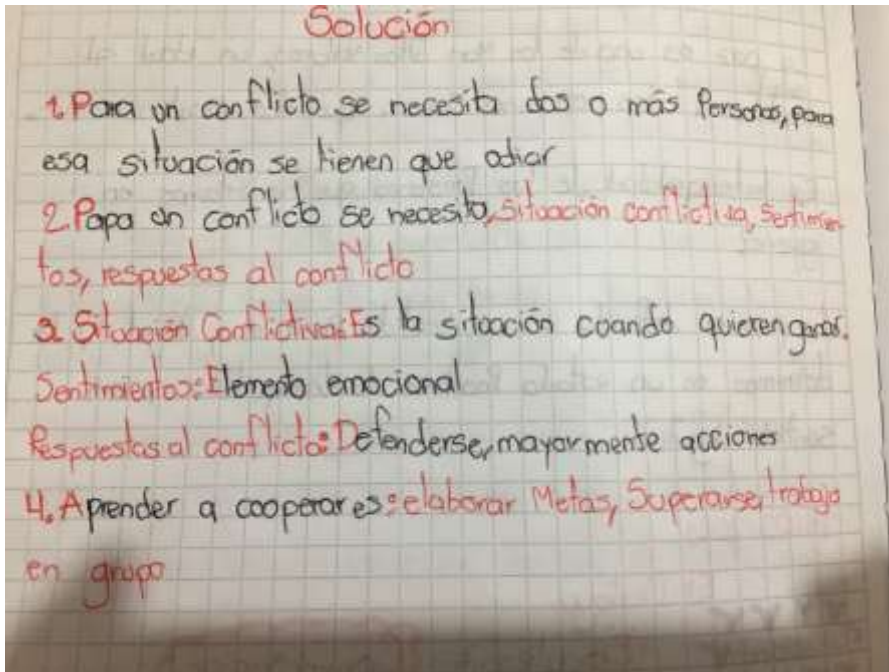 Solución
1. Para un conflicto se necesita dos o más Personas, para
esa situación se tienen que odiar
2. Papa un conflicto se necesita, situación conflictiva, sentimien
tos, respuestas al conflicto
3. Situación Conflictiva: Es la situación cuando quieren ganar.
Sentimientos: Elemento emocional
Respuestas al conflicto: Defenderse, mayormente acciones
4. Aprender a cooperar es: elaborar Metas, Superarse, trabajo
en grupo